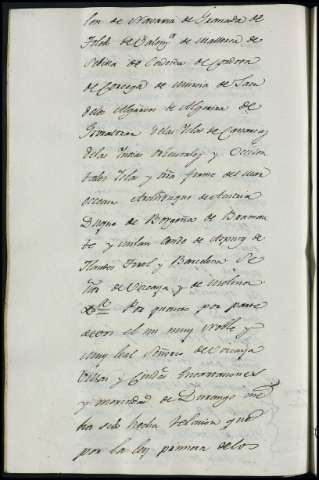 len de Navarra de Granada de
Toledo de Valenª de Mallorca de
Sebilla de Cerdeña de Cordova
de Corcega de Murcia de Jaen
delos Algarves de Algecira de
delas Yslas de Canaria
delas Yndias orientales y Occiden
tales Yslas y tierra firme del mar
occeano Archiduque de Austria
Duque de Borgoña de Braman
te y milan Conde de Aspurg de
Flandes Tirol y Barcelona Se
ñor de Vizcaya y de molina
&ª Por quanto por parte
de vos el mi muy Noble y
muy leal Señorio de Vizcaya
Villas y Ciudad Encartaciones
y merindad de Durango me
ha sido hecha relacion que
por la ley primera de los